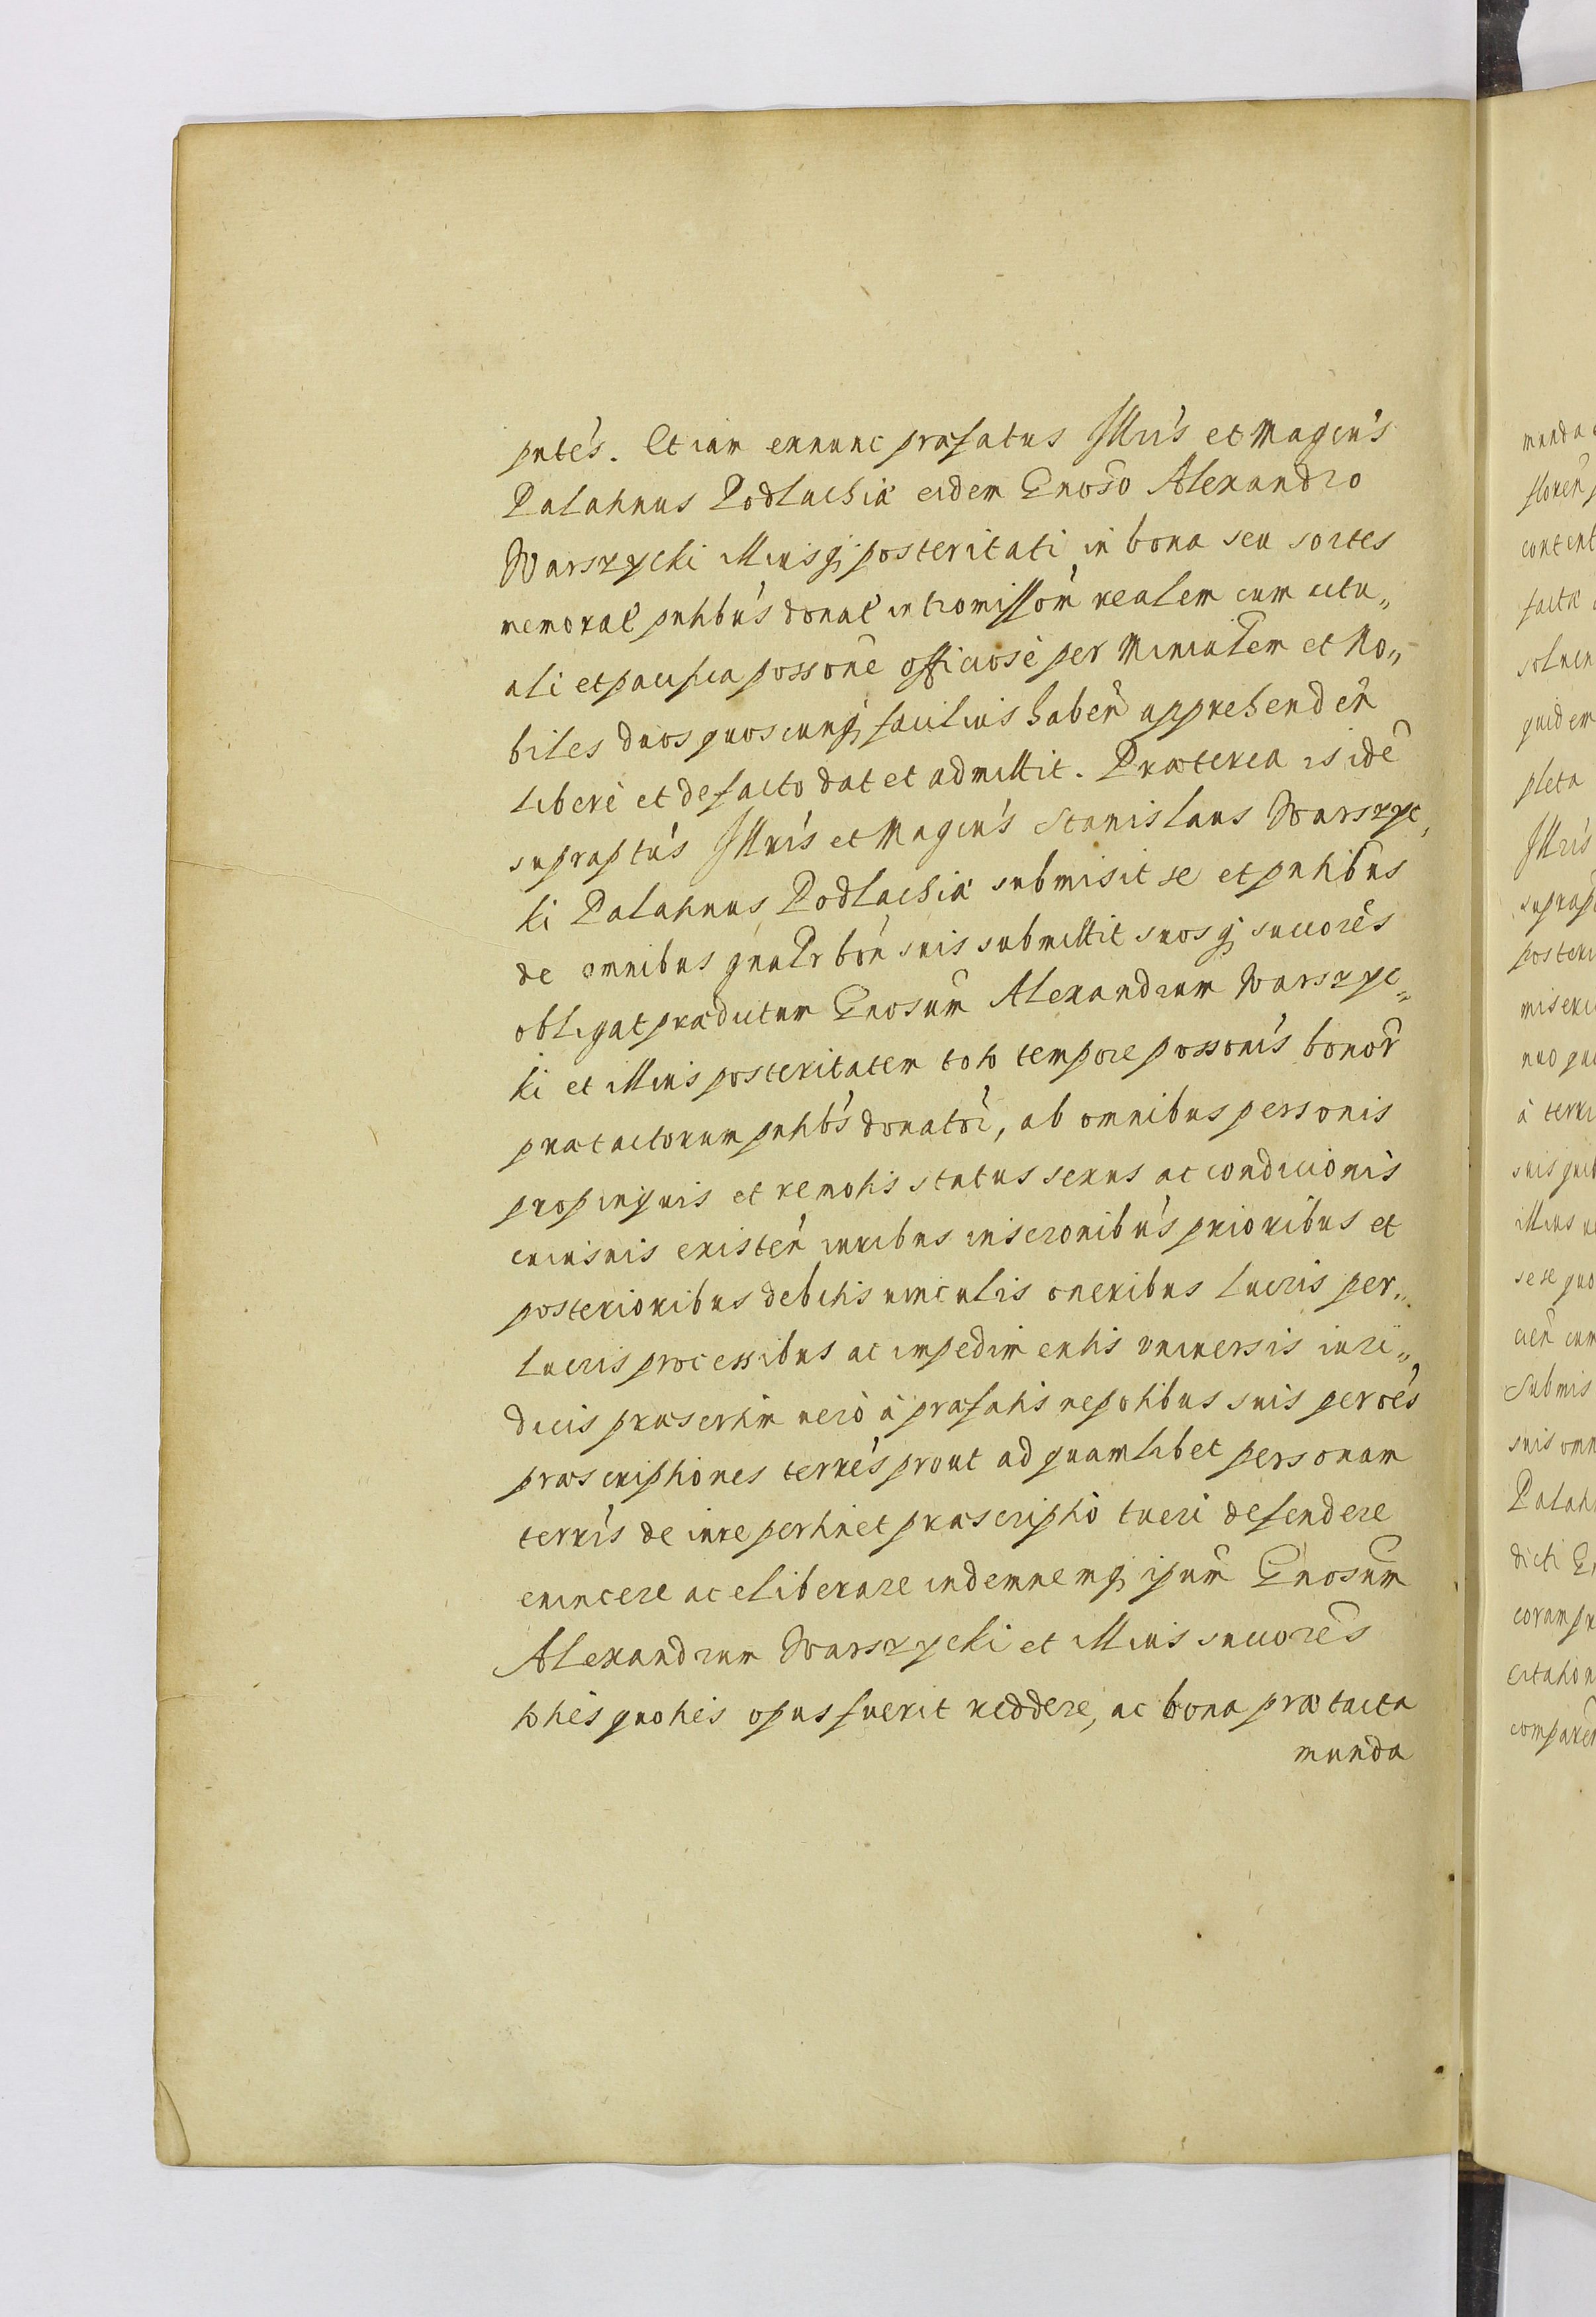 pntes. Et iam exnunc præfatus Illris et Magcus
Palatinus Podlachiæ eidem Gnoso Alexandro
Warszycki illiusq; posteritati, in bona seu sortes
memorat pntibus donat intromissom realem cum actu„
ali et pacifica possone officiose per Minialem et No„
biles duos quoscunq; facilius haben apprehenden
libere et defacto dat et admittit. Præterea is idē
supraptus Illris et Magcus Stanislaus Warszyc„
ki Palatinus Podlachiæ submisit se et pntibus
de omnibus gnalr bon suis submittit suosq; succores
obligat prædictum Gnosum Alexandrum Warszyc„
ki et illius posteritatem toto tempore possonis bonor
prætactorum pntibs donator, ab omnibus personis
propinquis et remotis status sexus ac condicionis
cuiusuis existen iuribus inscronibus prioribus et
posterioribus debitis uinculis oneribus lucris per„
lucris processibus ac impedimentis vniuersis iuri„
dicis præsertim uero à præfatis nepotibus suis per oes
præscriptiones terres prout ad quamlibet personam
terris de iure pertinet præscriptio tueri defendere
euincere ac eliberare indemnemq; ipum Gnosum
Alexandrum Warszycki et illius succores
toties quoties opus fuerit reddere, ac bona prætacta
munda
munda
floren
content
factæ
soluen
quidem
pleta
Illris
suprap
posteri
miseri
nuo qu
à terri
suis quib
illius
sese quo
cien cum
Submis
suis omn
Palati
dicti G
coram pr
citation
comparen